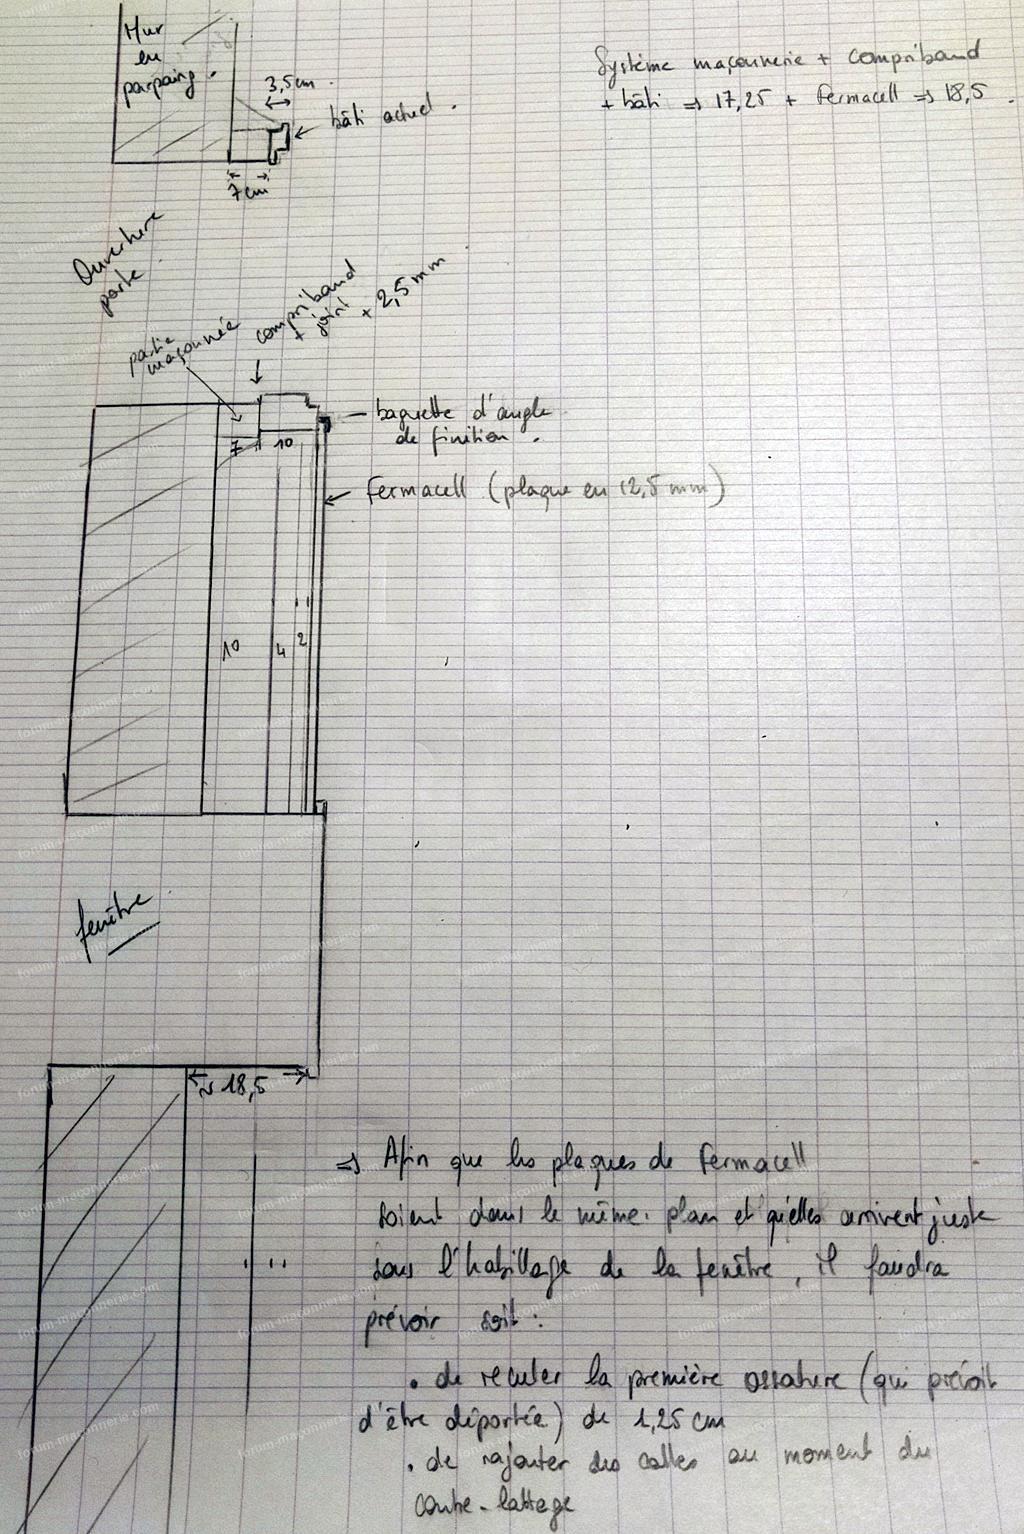 Mur
en
parpaing.
3,5cm.
bâti actuel.
7cm
Système maçonnerie + compriband
+ bâti => 17,25 + Fermacell => 18,5.
Ouverture
porte.
partie
maçonnée
compriband
+ joint
+ 2,5mm
baguette d'angle
de finition.
7 10
Fermacell (plaque en 12,5 mm)
10 4 2
fenêtre
≈ 18,5
=> Afin que les plaques de Fermacell
soient dans le même plan et qu'elles arrivent juste
sous l'habillage de la fenêtre, il faudra
prévoir soit:
• de reculer la première ossature (qui prévoit
d'être déportée) de 1,25 cm
• de rajouter des calles au moment du
contre-lattage
forum-maconnerie.com